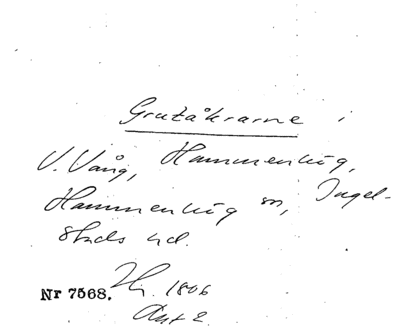 Grutåkrarne i
V. Vång, Hammenhög,
Hammenhög sn, Ingel-
stads hd.
Nr 7568. 1806
Akt 2